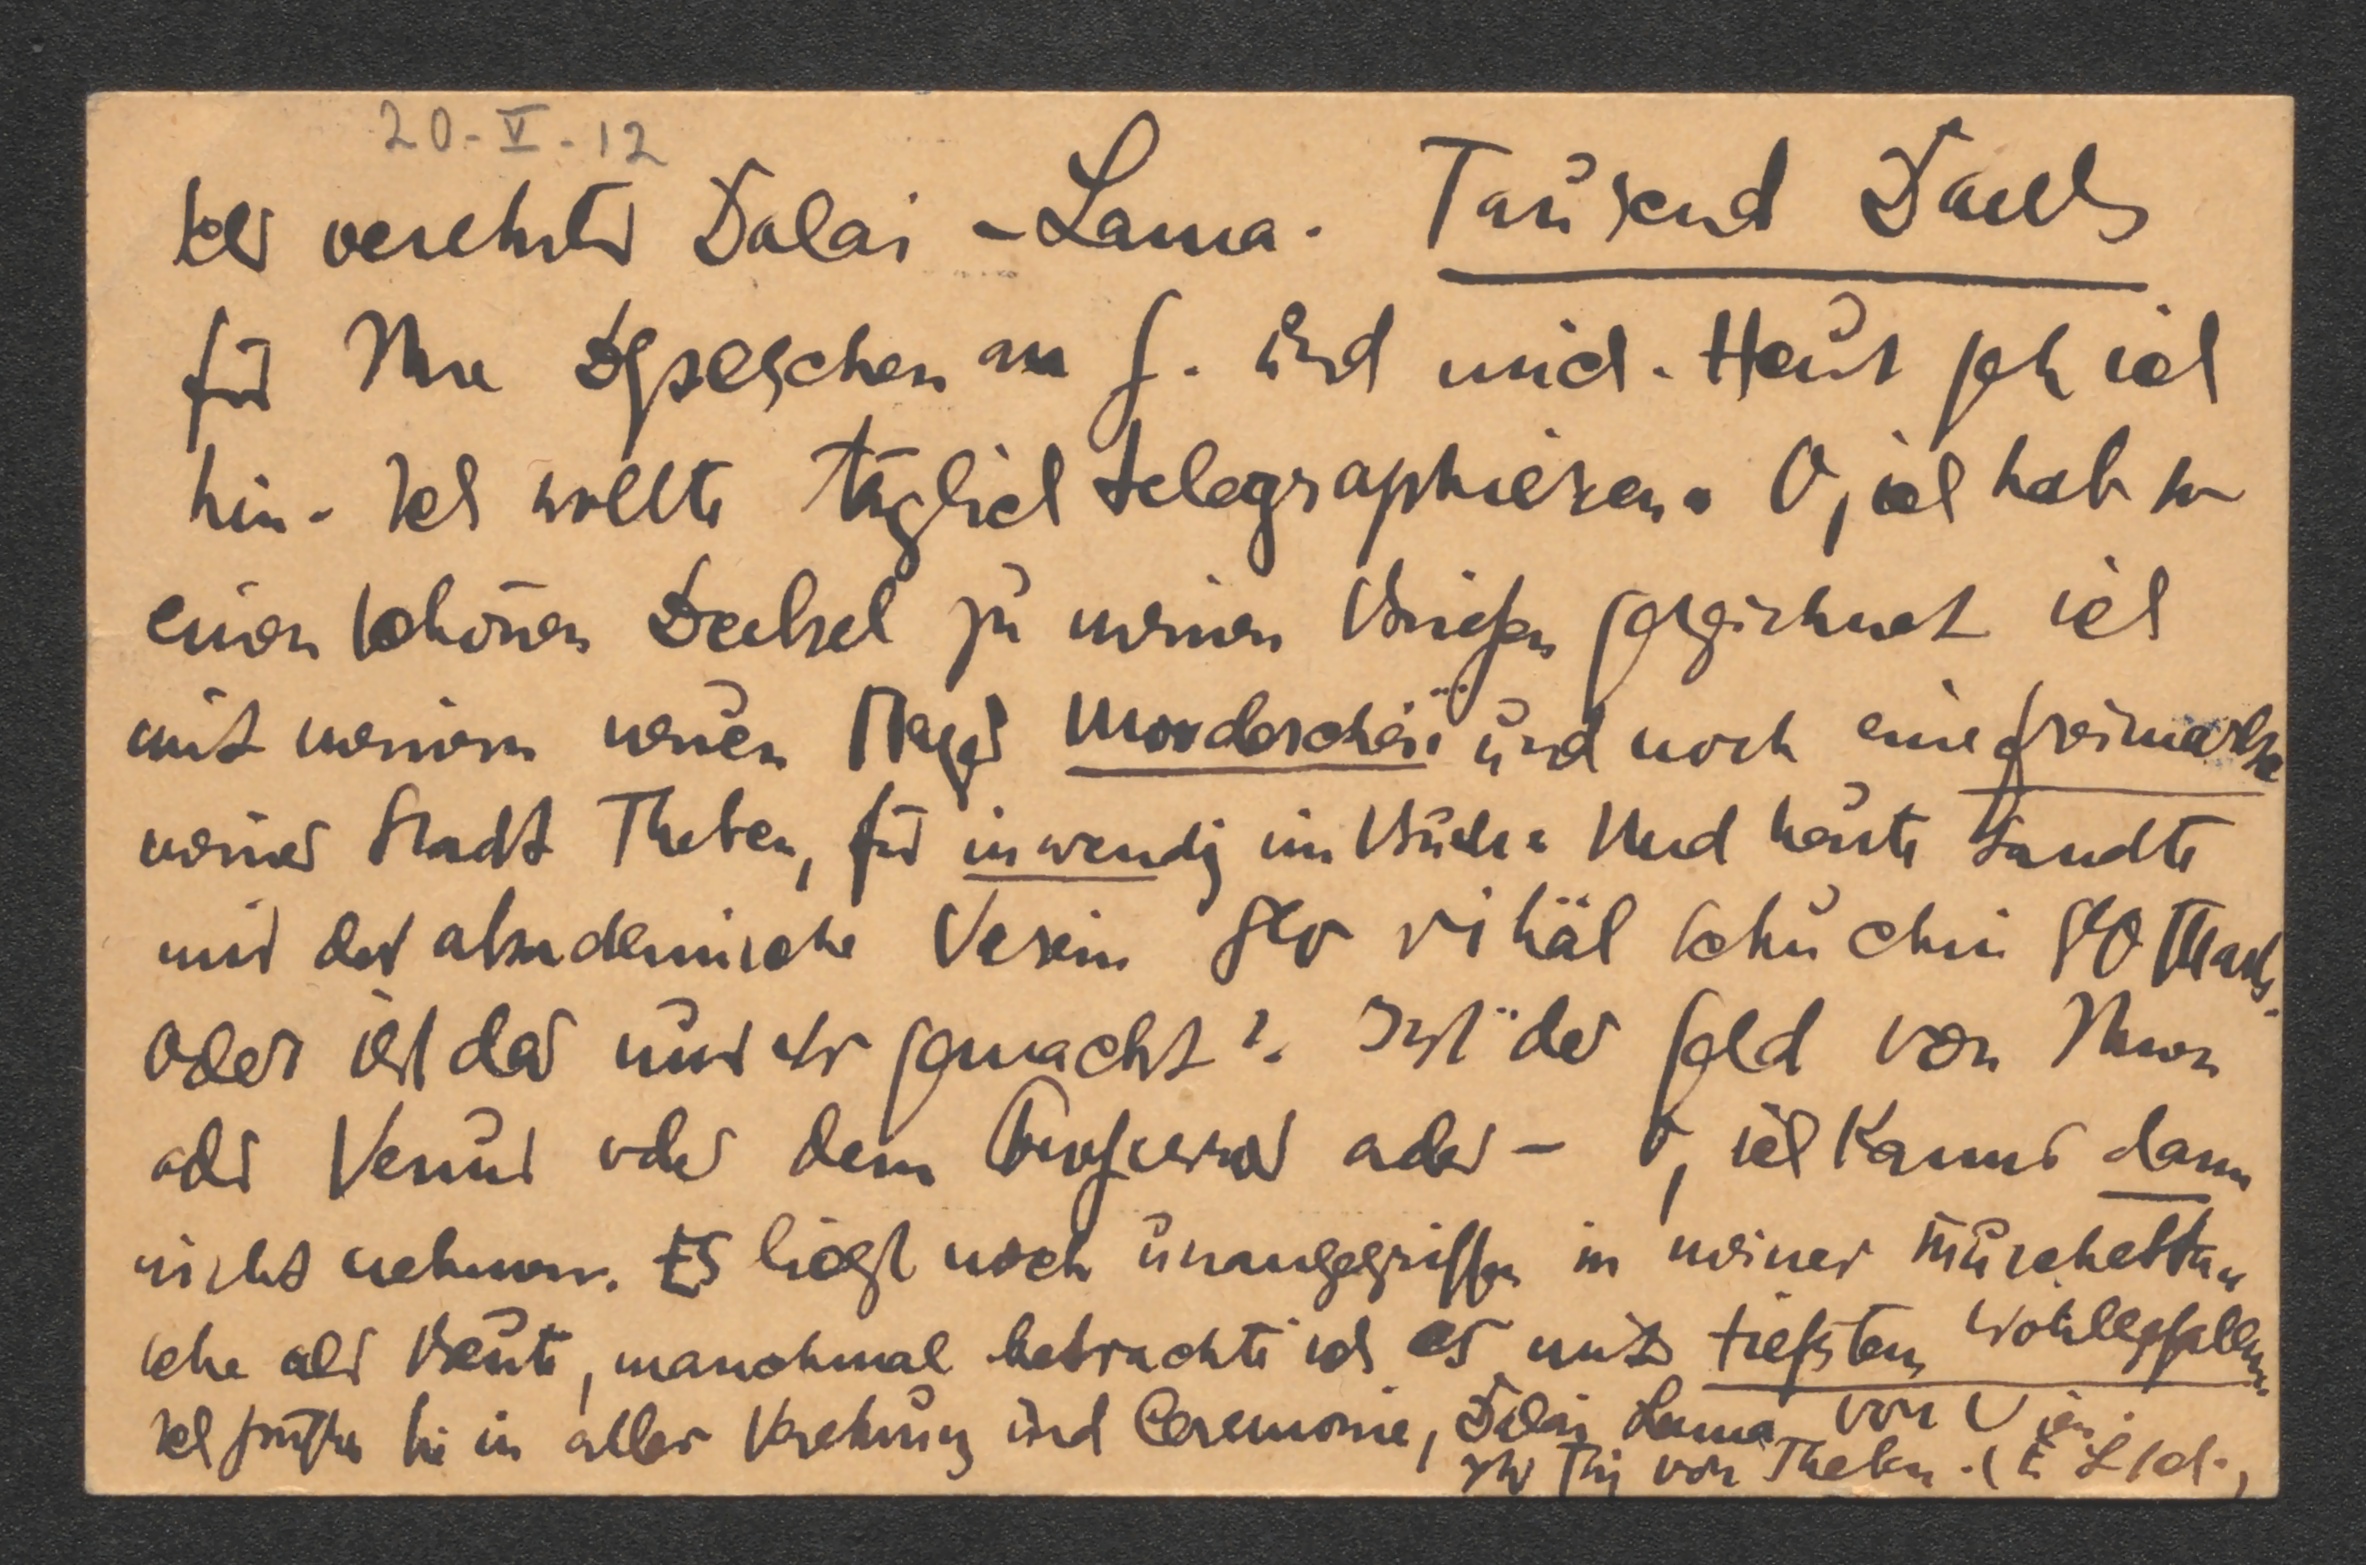 20-V-12
Sehr verehrter Dalai-Lama. Tausend Dank
für Ihre Depeschen an f. und mich. Heut geh ich
hin. Ich wollte täglich telegraphieren. O, ich hab so
einen schönen Deckel zu meinen Briefen gezeichnet ich
mit meinem neuen Neger und noch eine Freimarke
meiner Stadt Theben, für inwendig im Buch. Und heute sandte
mir der akademische Verein 50 Mark.
oder ist das nur so gemacht? Ist der Geld von Ihnen
oder Venus oder dem Professor oder – O, ich kanns dann
nicht nehmen. Es liegt noch unangegriffen in meiner Muscheltas
che als Beute, manchmal betrachte ich es mit tiefstem Wohlgefallen
Ich grüße Sie in aller Verehrung und Ceremonie, Dalai Lama von Wien.
Ihr Tino von Theben. (E L Sch.)